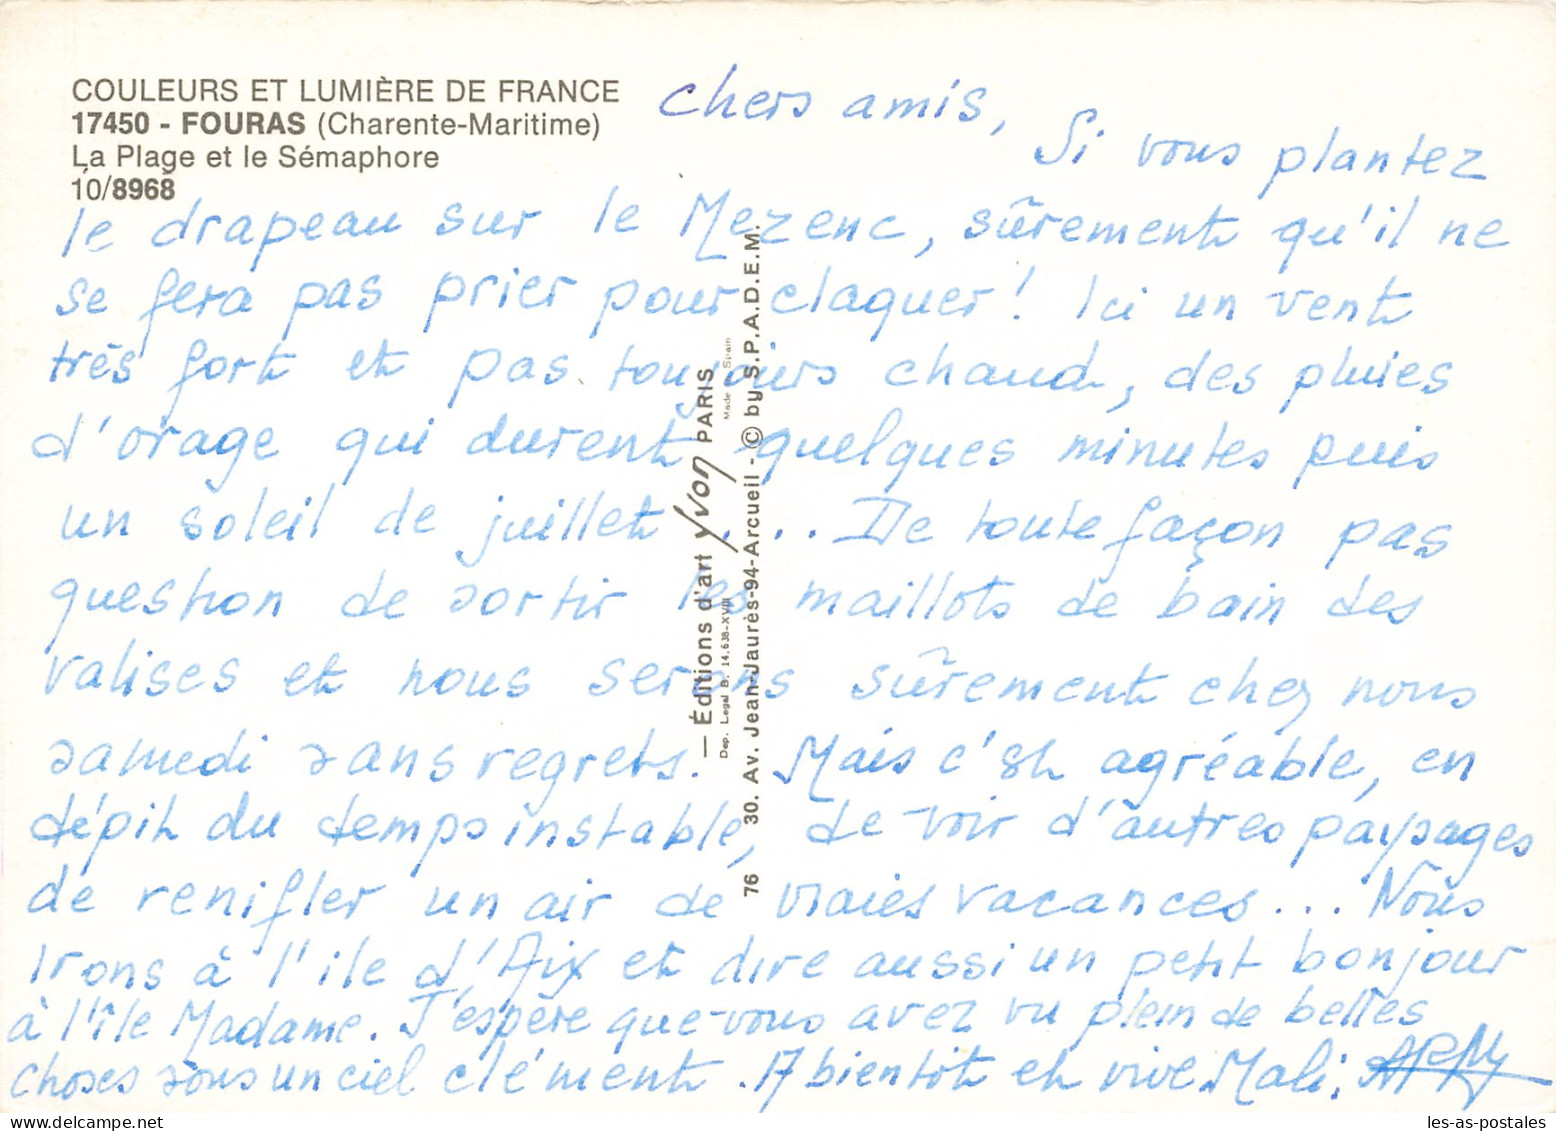 COULEURS ET LUMIÈRE DE FRANCE
17450 - FOURAS (Charente-Maritime)
La Plage et le Sémaphore
10/8968
Chers amis,
Si vous plantez
le drapeau sur le Mezenc, sûrement qu'il ne
se fera pas prier pour claquer ! Ici un vent
très fort et pas toujours chaud, des pluies
d'orage qui durent quelques minutes puis
un soleil de juillet .... De toute façon pas
question de sortir les maillots de bain des
valises et nous serons sûrement chez nous
samedi sans regrets. Mais c'est agréable, en
dépit du temps instable, de voir d'autres paysages
de renifler un air de vraies vacances... Nous
irons à l'île d'Aix et dire aussi un petit bonjour
à l'île Madame. J'espère que vous avez vu plein de belles
choses sous un ciel clément. A bientôt et vive Mali.
— Éditions d'art yvon PARIS
Dep. Legal B. 14.638-XVIII
Made Spain
76 30. Av. Jean-Jaurès-94-Arcueil - © by S.P.A.D.E.M.
les-as-postales